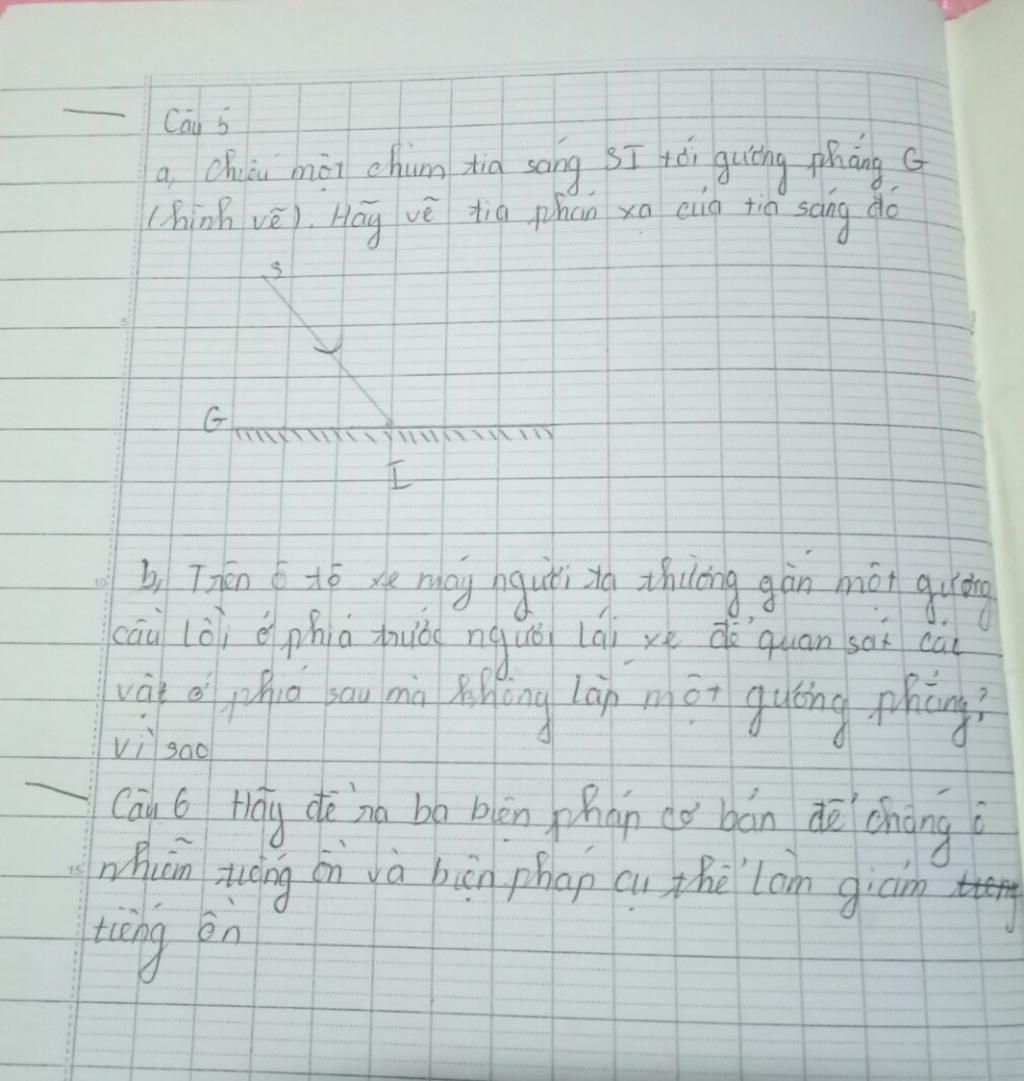 Câu 5
a, Chiếu một chùm tia sáng SI tới gương phẳng G
(hình vẽ). Hãy vẽ tia phản xạ của tia sáng đó
S
G
I
b, Trên ô tô xe máy người ta thường gắn một gương
cầu lồi ở phía trước người lái xe để quan sát các
vật ở phía sau mà không lắp một gương phẳng?
vì sao
Câu 6 Hãy đề ra ba biện pháp cơ bản để chống ô
nhiễm tiếng ồn và biện pháp cụ thể làm giảm
tiếng ồn